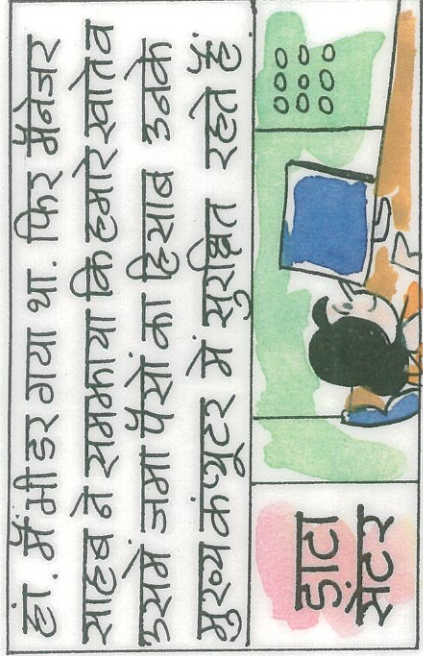 हां. मैं भी डर गया था. फिर मैनेजर
साहब ने समझाया कि हमारे खाते व
उसमें जमा पैसों का हिसाब उनके
मुख्य कंप्यूटर में सुरक्षित रहते हैं.
डाटा
सेंटर